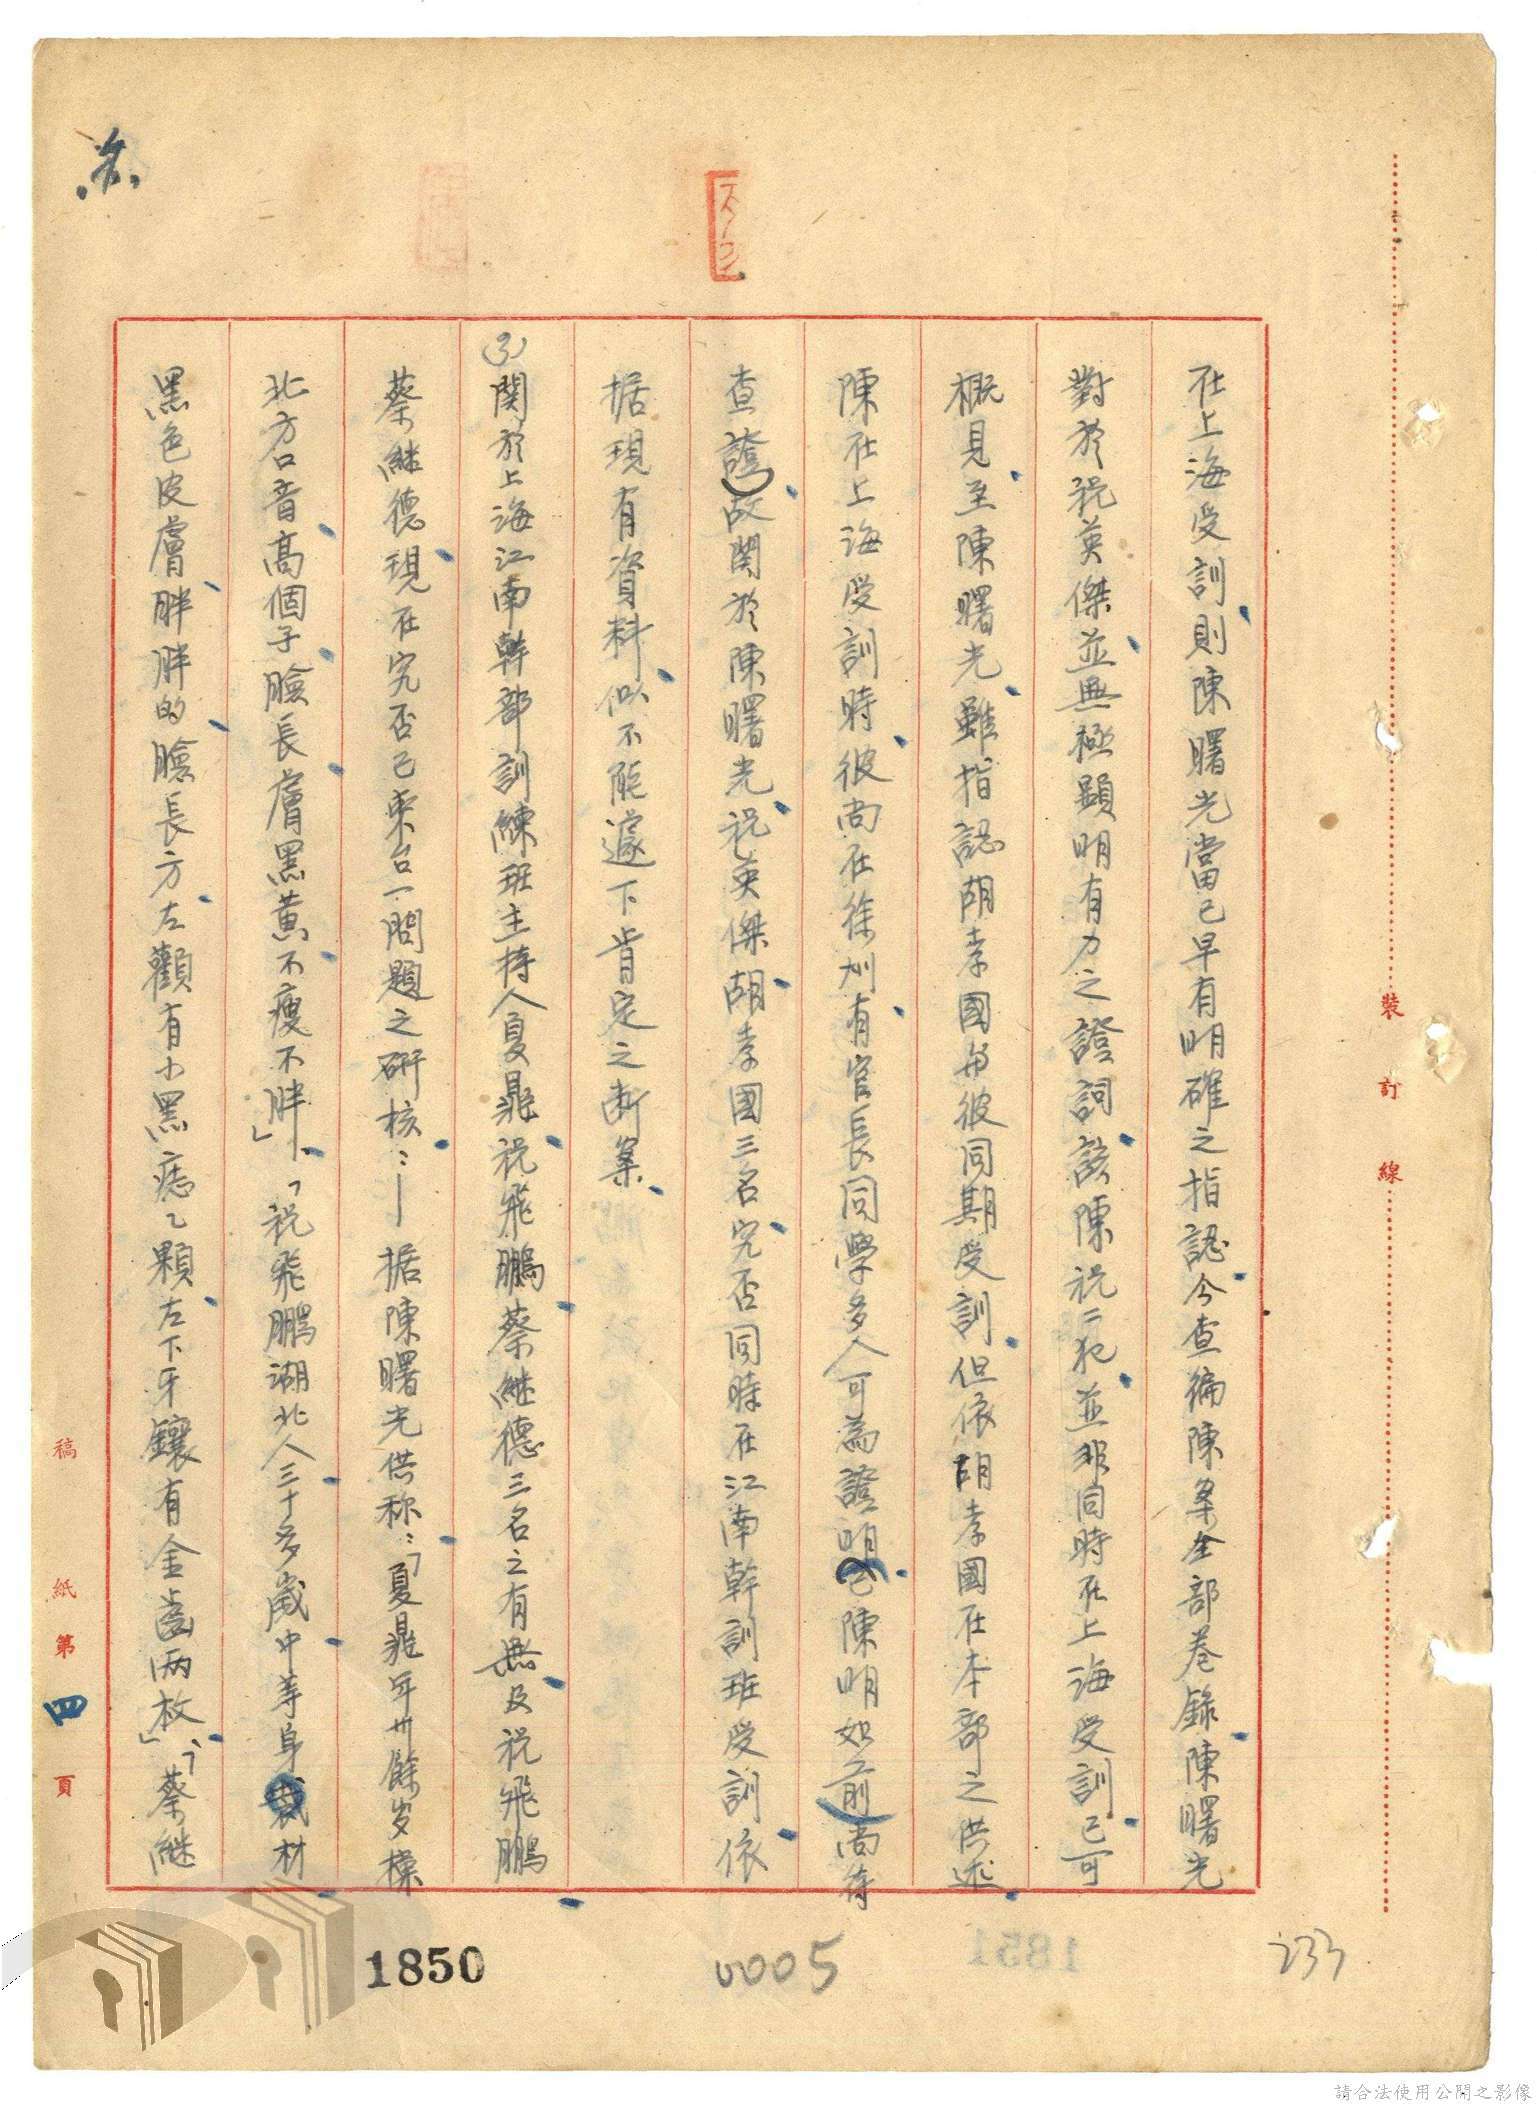 在上海受訓則陳曙光當已早有明確之指認今查徧陳案全部卷錄陳曙光
對於祝英傑並無極顯明有力之證詞該陳祝二犯並非同時在上海受訓已可
概見至陳曙光雖指認胡孝國與彼同期受訓但依胡孝國在本部之供述
陳在上海受訓時彼尚在徐州有官長同學多人可為證明已陳明如前尚待
查證故関於陳曙光祝英傑胡孝國三名究否同時在江南幹訓班受訓依
据現有資料似不能遽下肯定之断案
(3)関於上海江南幹部訓練班主持人夏鼎祝飛鵬蔡継德三名之有無及祝飛鵬
蔡継德現在究否已來台一問題之研核：—据陳曙光供称：「夏鼎年卅餘岁操
北方口音高個子臉長膚黑黄不瘦不胖」、「祝飛鵬湖北人三十多歲中等身材
黑色皮膚胖胖的臉長方左顴有小黑痣乙顆左下牙鑲有金齒両枚」、「蔡継
裝訂線
稿紙第四頁
1850
0005
1851
233
請合法使用公開之影像